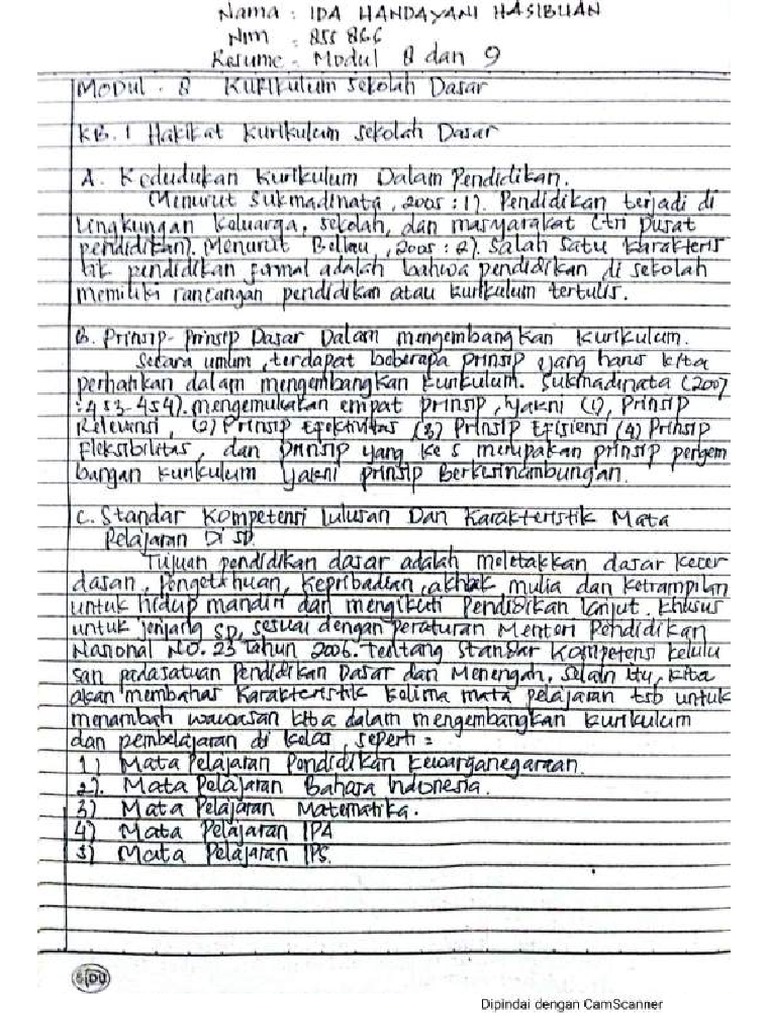 Nama : IDA HANDAYANI HASIBUAN
Nim : 855 866
Resume - Modul 8 dan 9
MODUL - 8 Kurikulum Sekolah Dasar
KB. 1 Hakikat Kurikulum Sekolah Dasar
A. Kedudukan Kurikulum Dalam Pendidikan.
Menurut Sukmadinata, 2005 : 1). Pendidikan terjadi di
Lingkungan Keluarga, sekolah, dan masyarakat (tri pusat
pendidikan). Menurut Bellau, 2005 : 2). Salah satu karakteris
tik pendidikan formal adalah bahwa pendidikan di sekolah
memiliki rancangan pendidikan atau kurikulum tertulis.
B. Prinsip-Prinsip Dasar Dalam mengembangkan Kurikulum.
Secara umum, terdapat beberapa prinsip yang harus kita
perhatikan dalam mengembangkan kurikulum. Sukmadinata (2007
: 453-454). mengemukakan empat prinsip, yakni (1), Prinsip
Relevansi, (2) Prinsip Efektivitas (3) Prinsip Efisiensi (4) Prinsip
Fleksibilitas, dan prinsip yang ke 5 merupakan prinsip pengem
bangan kurikulum yakni prinsip Berkesinambungan.
C. Standar Kompetensi Lulusan Dan Karakteristik Mata
Pelajaran Di SD.
Tujuan pendidikan dasar adalah meletakkan dasar kecer
dasan, Pengetahuan, Kepribadian, akhlak mulia dan ketrampilan
untuk hidup mandiri dan mengikuti Pendidikan lanjut. Khusus
untuk jenjang SD, sesuai dengan peraturan Menteri Pendidikan
Nasional NO. 23 Tahun 2006. tentang Standar Kompetensi kelulu
san pada satuan Pendidikan Dasar dan Menengah, Selain itu, kita
akan membahas Karakteristik kelima mata pelajaran tsb untuk
menambah wawasan kita dalam mengembangkan kurikulum
dan pembelajaran di kelas, seperti :
1) Mata Pelajaran Pendidikan Kewarganegaraan.
2). Mata Pelajaran Bahasa Indonesia.
3) Mata Pelajaran Matematika.
4) Mata Pelajaran IPA
5) Mata Pelajaran IPS.
Dipindai dengan CamScanner